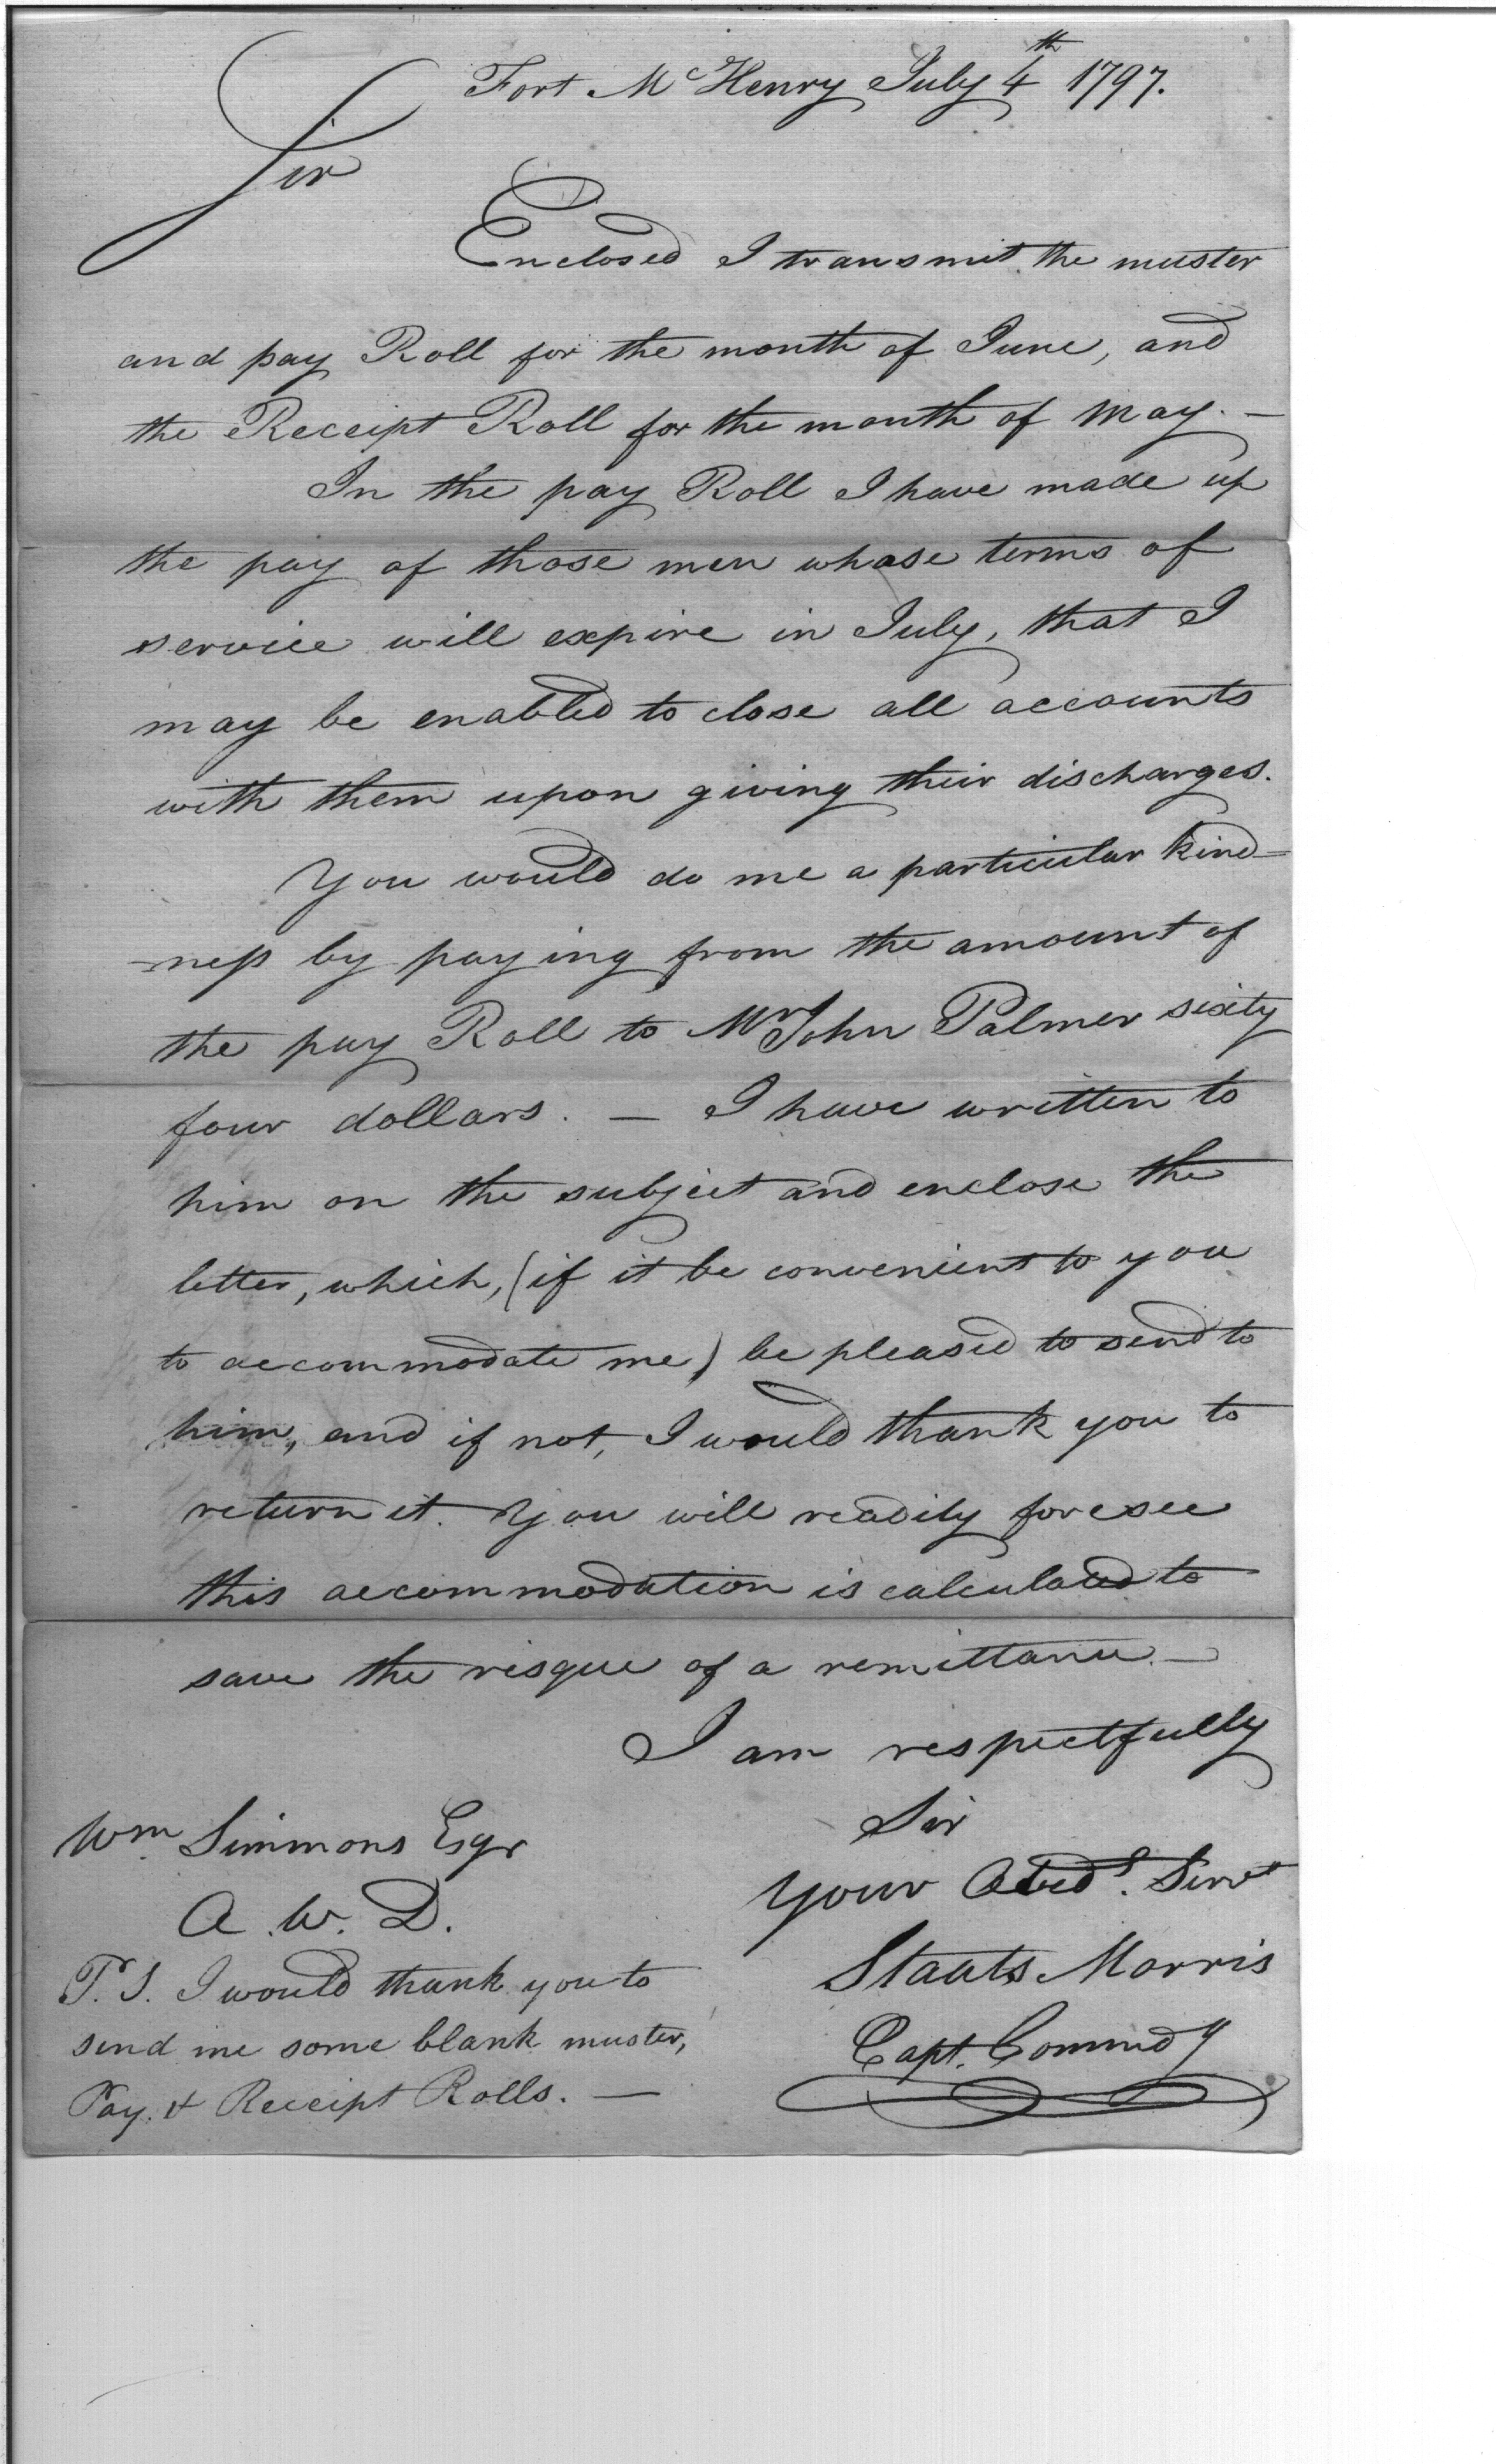 Fort McHenry July 4th 1797.
Sir
Enclosed I transmit the muster
and pay Roll for the month of June, and
the Receipt Roll for the month of May. —
In the pay Roll I have made up
the pay of those men whose terms of
service will expire in July, that I
may be enabled to close all accounts
with them upon giving their discharges.
You would do me a particular kind-
-ness by paying from the amount of
the pay Roll to Mr John Palmer sixty
four dollars. — I have written to
him on the subject and enclose the
letter, which, (if it be convenient to you
to accommodate me) be pleased to send to
him, and if not, I would thank you to
return it. You will readily foresee
this accommodation is calculated to
save the risque of a remittance. —
I am respectfully
Sir
Your Obedt. Servt
Staats Morris
Capt. Commdg
Wm. Simmons Esqr
A. W. D.
P.S. I would thank you to
send me some blank muster,
Pay. & Receipt Rolls. —